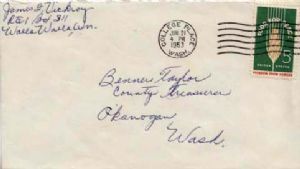 James E. McElroy
Rt. 1 Box 311
Walla Walla Wn.
COLLEGE PLACE
WASH.
JUN 21
4 PM
1963
FOOD FOR PEACE
5¢
UNITED STATES
FREEDOM FROM HUNGER
Benner Taylor
County Treasurer
Okanogan
Wash.